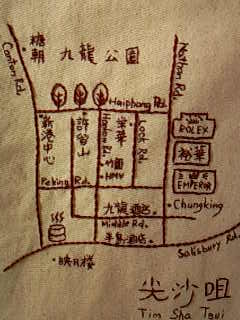 Canton Rd.
糖朝
九龍公園
Nathan Rd.
Haiphong Rd.
新港中心
許留山
Hankow Rd.
榮華
竹園
HMV
Lock Rd.
ROLEX
裕華
EMPEROR
Peking Rd.
九龍酒店
Chungking
Middle Rd.
半島酒店
Salisbury Rd.
映月楼
尖沙咀
Tim Sha Tsui